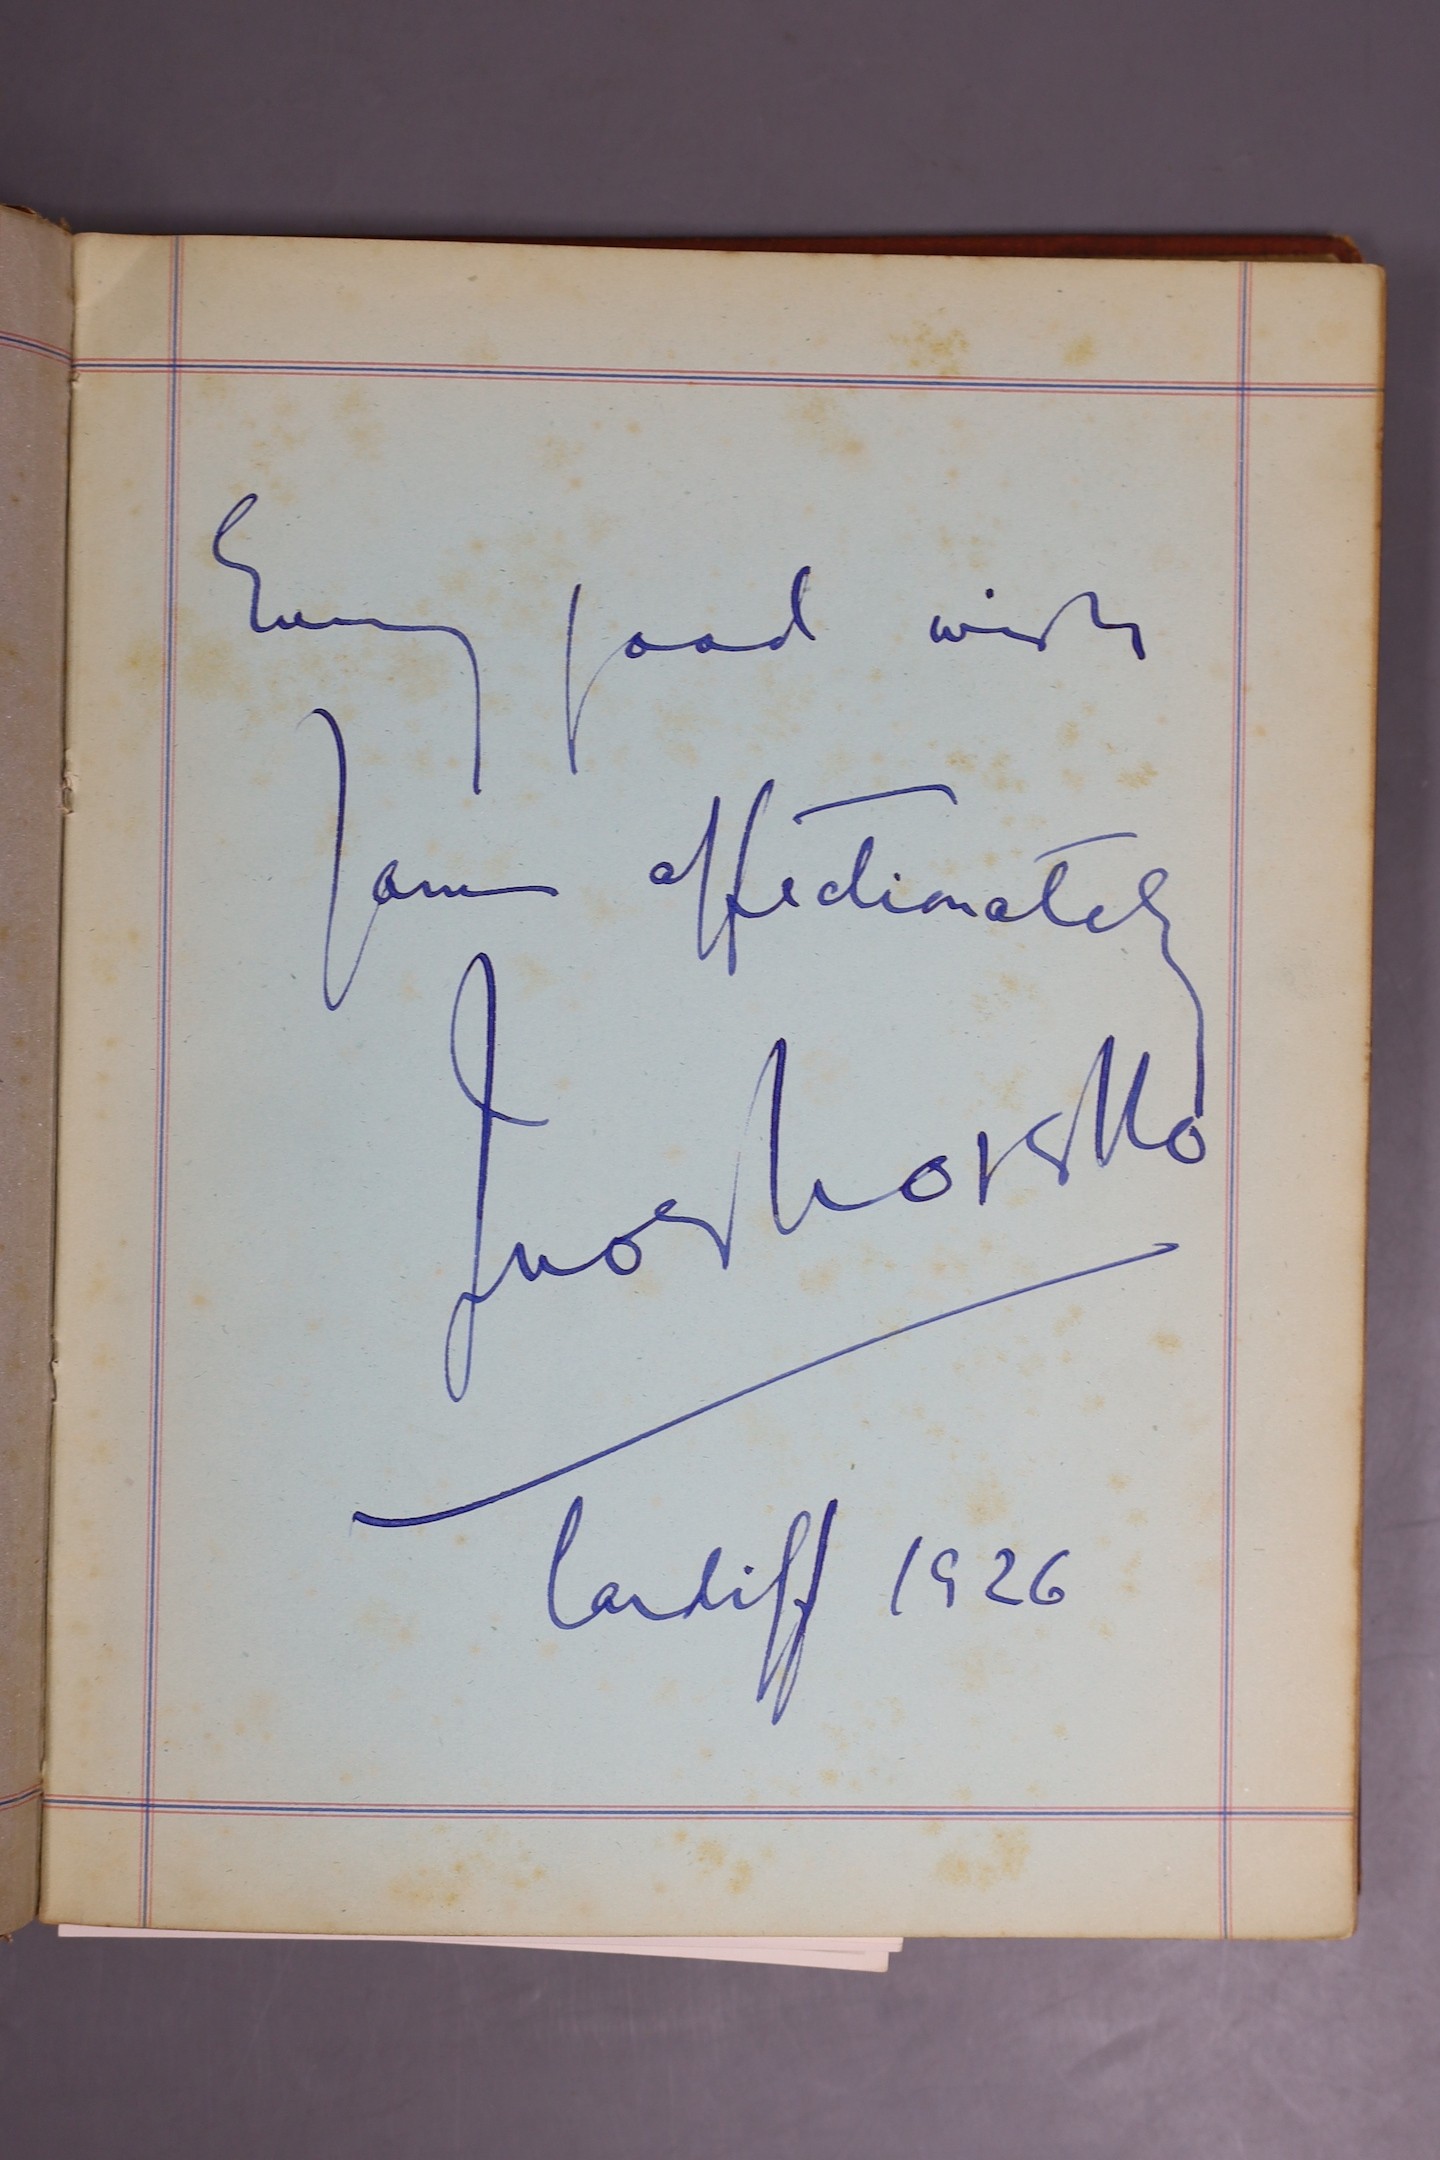 Every good wish
Yours affectionately
Ivor Novello
Cardiff 1926